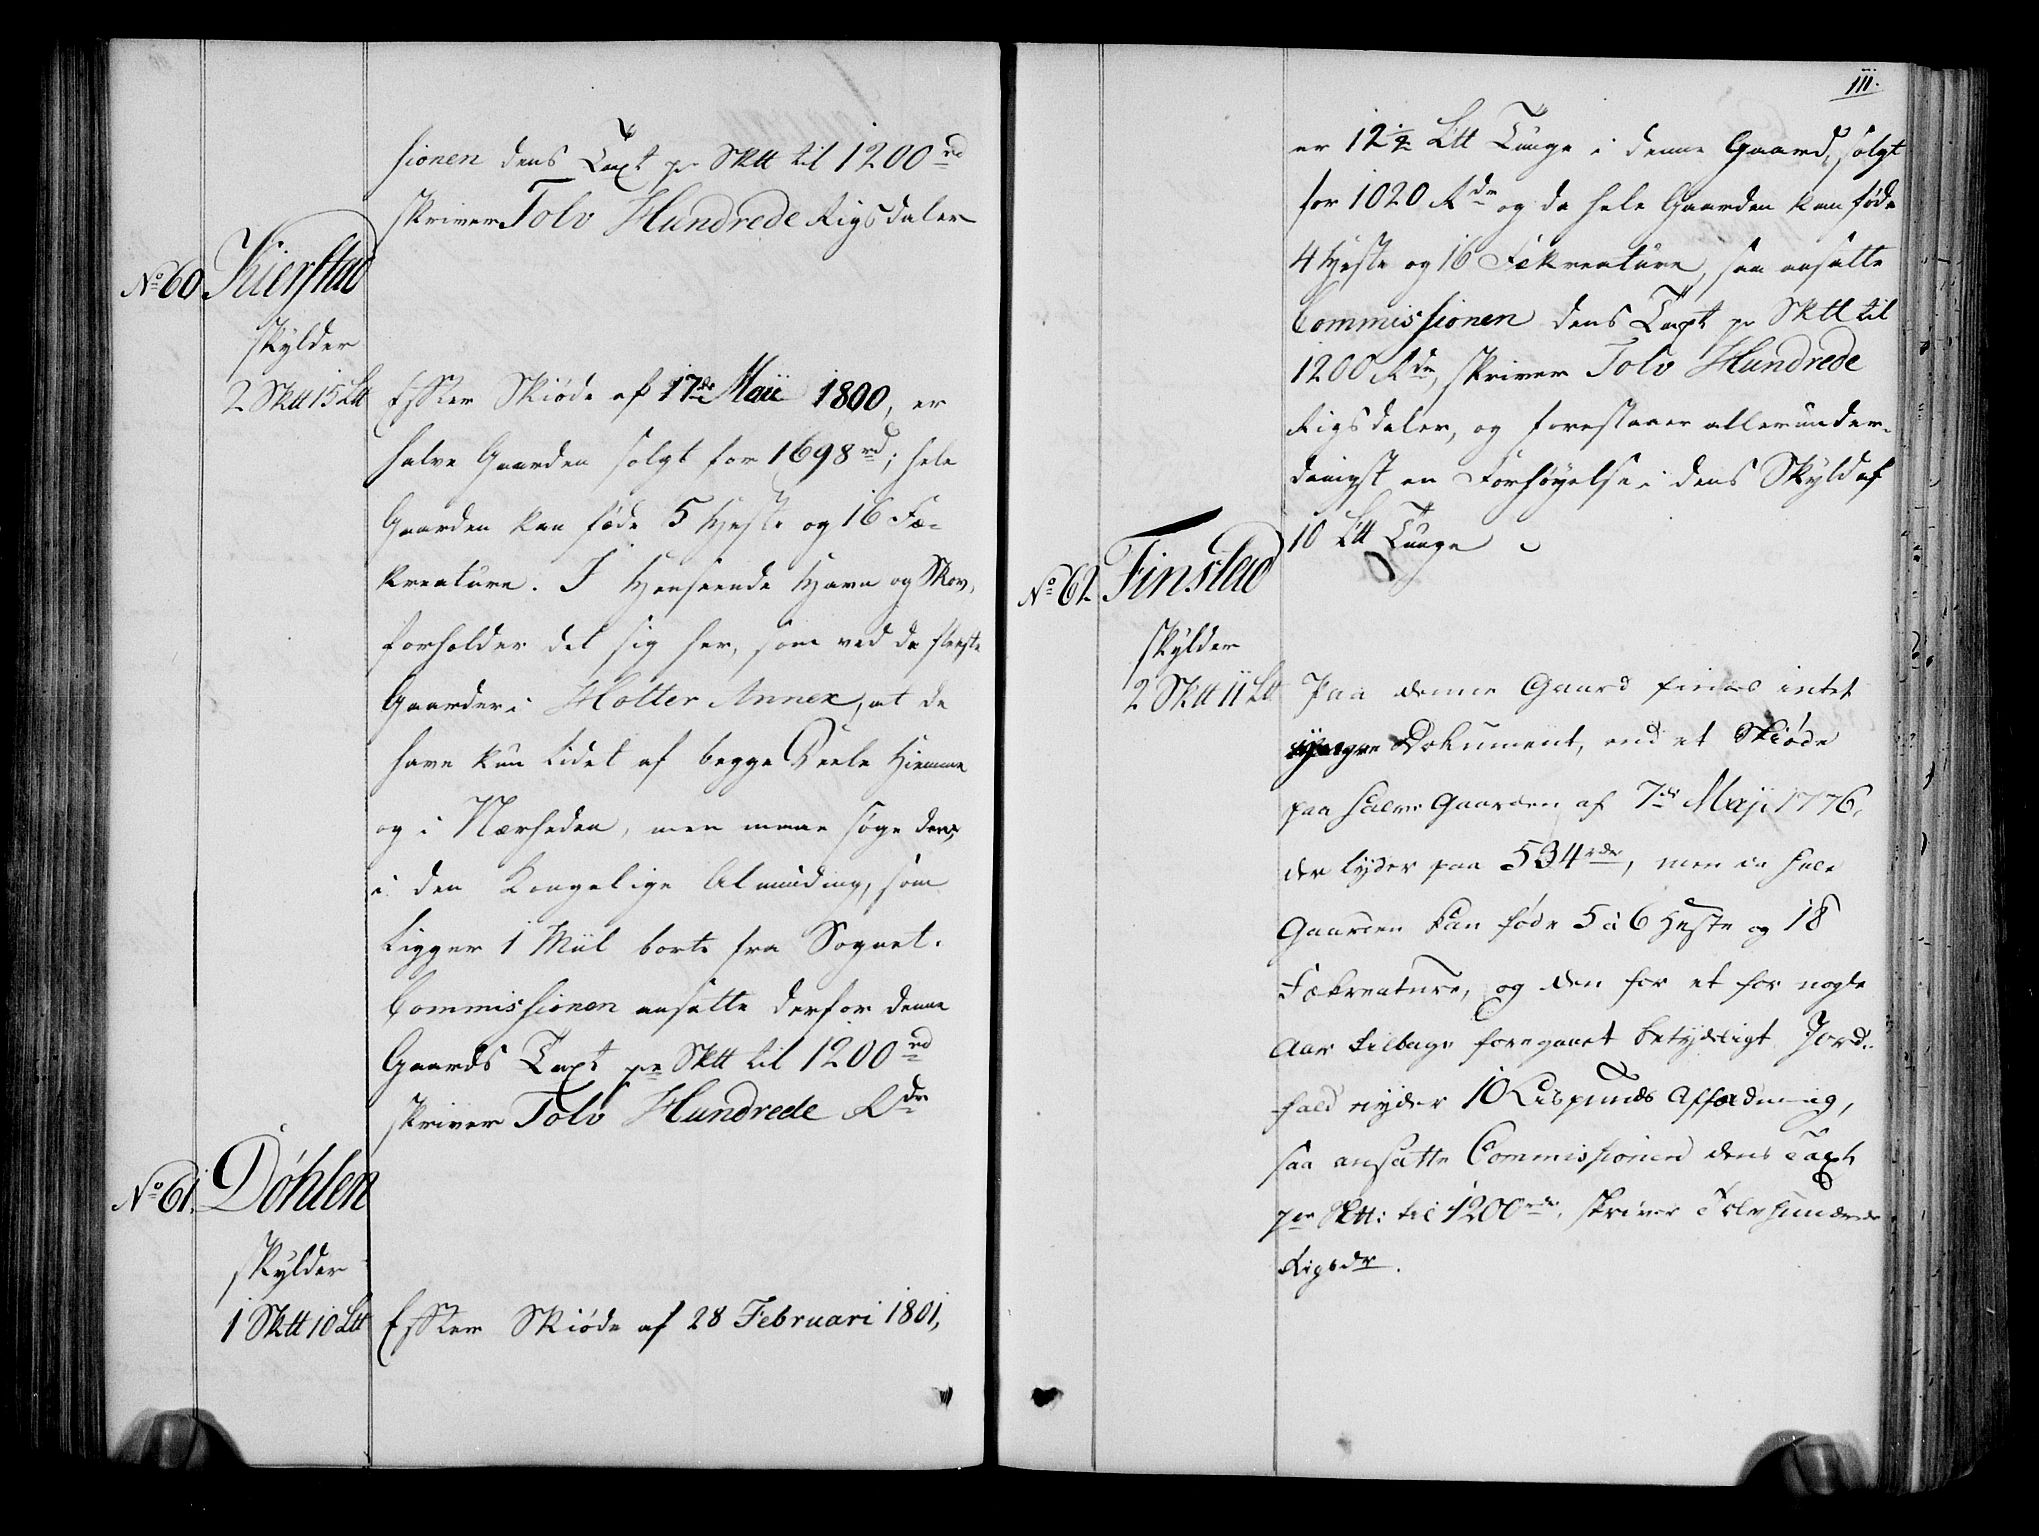 sionen dens Taxt pr Sktt til 1200 rd
skriver Tolv Hundrede Rigsdaler
No 60. Kierstad
skylder
2 Sktt 15 Ltt
Efter Skiøde af 17de Maii 1800, er
halve Gaarden solgt for 1698 rd; hele
Gaarden kan føde 5 Heste og 16 Fæ-
kreature. I Henseende Havn og Skov,
forholder det sig her, som ved de fleeste
Gaarder i Holter Annex, at de
have kun lidet af begge Deele hiemme
og i Nærheden, men maae søge dem,
i den Kongelige Alminding, som
ligger 1 Miil borte fra Sognet.
Commissionen ansatte derfor denne
Gaards Taxt pr Sktt til 1200 rd
skriver Tolv Hundrede Rdr
No 61. Døhlen
skylder
1 Sktt 10 Ltt
Efter Skiøde af 28 Februari 1801,
111.
er 12½ Ltt Tunge i denne Gaard, solgt
for 1020 Rdr og da hele Gaarden kan føde
4 Heste og 16 Fækreature, saa ansatte
Commissionen dens Taxt pr Sktt til
1200 Rdr, skriver Tolv Hundrede
Rigsdaler, og forestaaer allerunder-
danigst en Forhøyelse i dens Skyld af
10 Ltt Tunge
No 62. Finstad
skylder
2 Sktt 11 Ltt
Paa denne Gaard findes intet
yngre Dokument, end et Skiøde
paa halve Gaarden af 7de Maji 1776,
der lyder paa 534 rdr, men da hele
Gaarden kan føde 5 à 6 Heste og 18
Fækreature, og den for et for nogle
Aar tilbage foregaaet betydeligt Jord-
fald nyder 10 Lispunds Affældning,
saa ansatte Commissionen dens Taxt
per Sktt: til 1200 rdr, skriver Tolv Hundrede
Rigsdr.